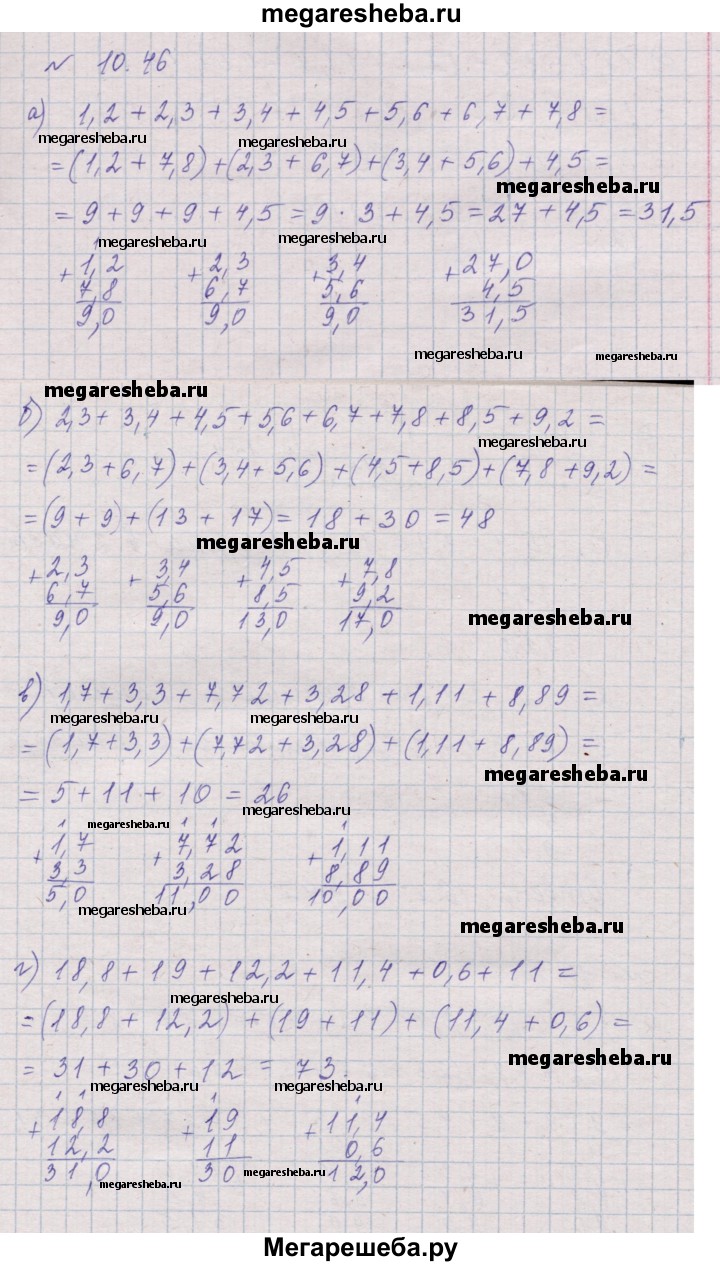 megaresheba.ru
№ 10.46
а) 1,2 + 2,3 + 3,4 + 4,5 + 5,6 + 6,7 + 7,8 =
megaresheba.ru megaresheba.ru
= (1,2 + 7,8) + (2,3 + 6,7) + (3,4 + 5,6) + 4,5 =
megaresheba.ru
= 9 + 9 + 9 + 4,5 = 9 · 3 + 4,5 = 27 + 4,5 = 31,5
megaresheba.ru megaresheba.ru
1
+ 1,2 + 2,3 + 3,4 + 27,0
7,8 6,7 5,6 4,5
9,0 9,0 9,0 31,5
megaresheba.ru megaresheba.ru
megaresheba.ru
б) 2,3 + 3,4 + 4,5 + 5,6 + 6,7 + 7,8 + 8,5 + 9,2 =
megaresheba.ru
= (2,3 + 6,7) + (3,4 + 5,6) + (4,5 + 8,5) + (7,8 + 9,2) =
= (9 + 9) + (13 + 17) = 18 + 30 = 48
megaresheba.ru
+ 2,3 + 3,4 + 4,5 + 7,8
6,7 5,6 8,5 9,2
9,0 9,0 13,0 17,0
megaresheba.ru
в) 1,7 + 3,3 + 7,72 + 3,28 + 1,11 + 8,89 =
megaresheba.ru megaresheba.ru
= (1,7 + 3,3) + (7,72 + 3,28) + (1,11 + 8,89) =
megaresheba.ru
= 5 + 11 + 10 = 26
megaresheba.ru
megaresheba.ru
1 1 1 1
+ 1,7 + 7,72 + 1,11
3,3 3,28 8,89
5,0 11,00 10,00
megaresheba.ru
megaresheba.ru
г) 18,8 + 19 + 12,2 + 11,4 + 0,6 + 11 =
megaresheba.ru
= (18,8 + 12,2) + (19 + 11) + (11,4 + 0,6) =
megaresheba.ru
= 31 + 30 + 12 = 73.
megaresheba.ru megaresheba.ru
1 1 1 1
+ 18,8 + 19 + 11,4
12,2 11 0,6
31,0 30 12,0
megaresheba.ru megaresheba.ru megaresheba.ru
Мегарешеба.ру